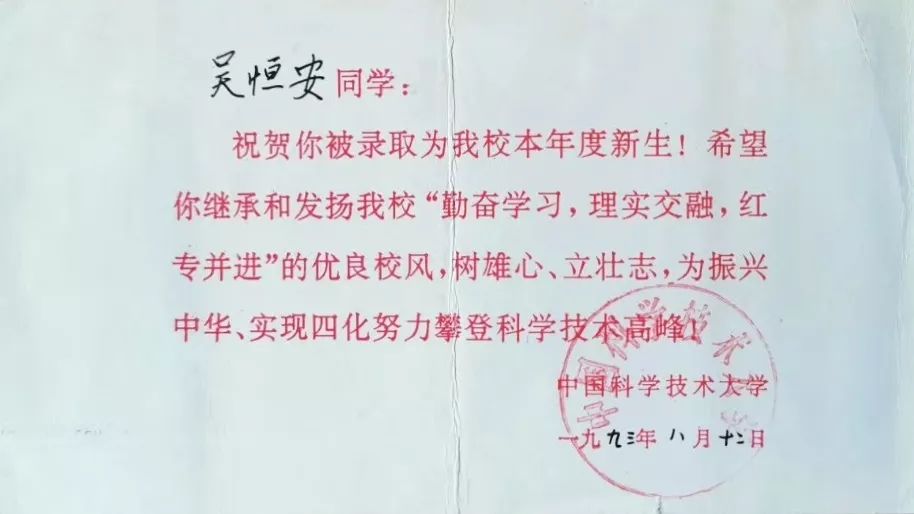 吴恒安同学：
祝贺你被录取为我校本年度新生！希望
你继承和发扬我校“勤奋学习，理实交融，红
专并进”的优良校风，树雄心、立壮志，为振兴
中华、实现四化努力攀登科学技术高峰！
中国科学技术大学
一九九三年八月十二日
中国科学技术大学